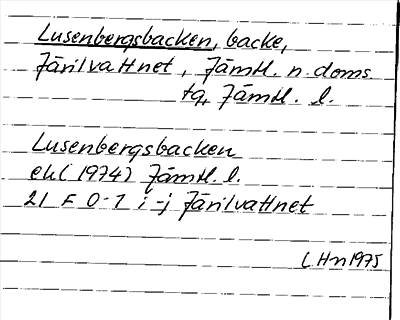 Lusenbergsbacken, backe,
Järilvattnet, Jämtl. n. doms.
tg, Jämtl. l.
Lusenbergsbacken
ek (1974) Jämtl. l.
21 F 0-1 i-j Järilvattnet
LHn 1975